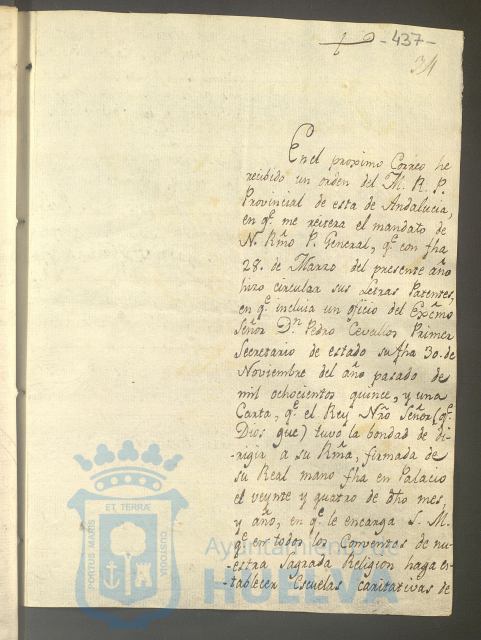 - 437 -
34
En el proximo Correo he
recibido un orden del M. R. P.
Provincial de esta de Andalucia,
en qe. me reitera el mandato de
N. Rmo P. General, qe. con fha
28. de Marzo del presente año
hizo circular sus Letras Patentes,
en qe. incluia un oficio del Exćmo
Señor Dn. Pedro Cevallos Primer
Secretario de estado su fha 30. de
Noviembre del año pasado de
mil ochocientos quince, y una
Carta, qe. el Rey Nŕo Señor (qe.
Dios gue) tuvo la bondad de di-
-rigir a su Rma, firmada de
su Real mano fha en Palacio
el veynte y quatro de dho mes,
y año, en qe. le encarga S. M.
qe. en todos los Conventos de nu-
estra Sagrada Religion haga es-
-tablecer Escuelas caritativas de
PORTUS MARIS ET TERRÆ CUSTODIA
Ayuntamiento de
HUELVA